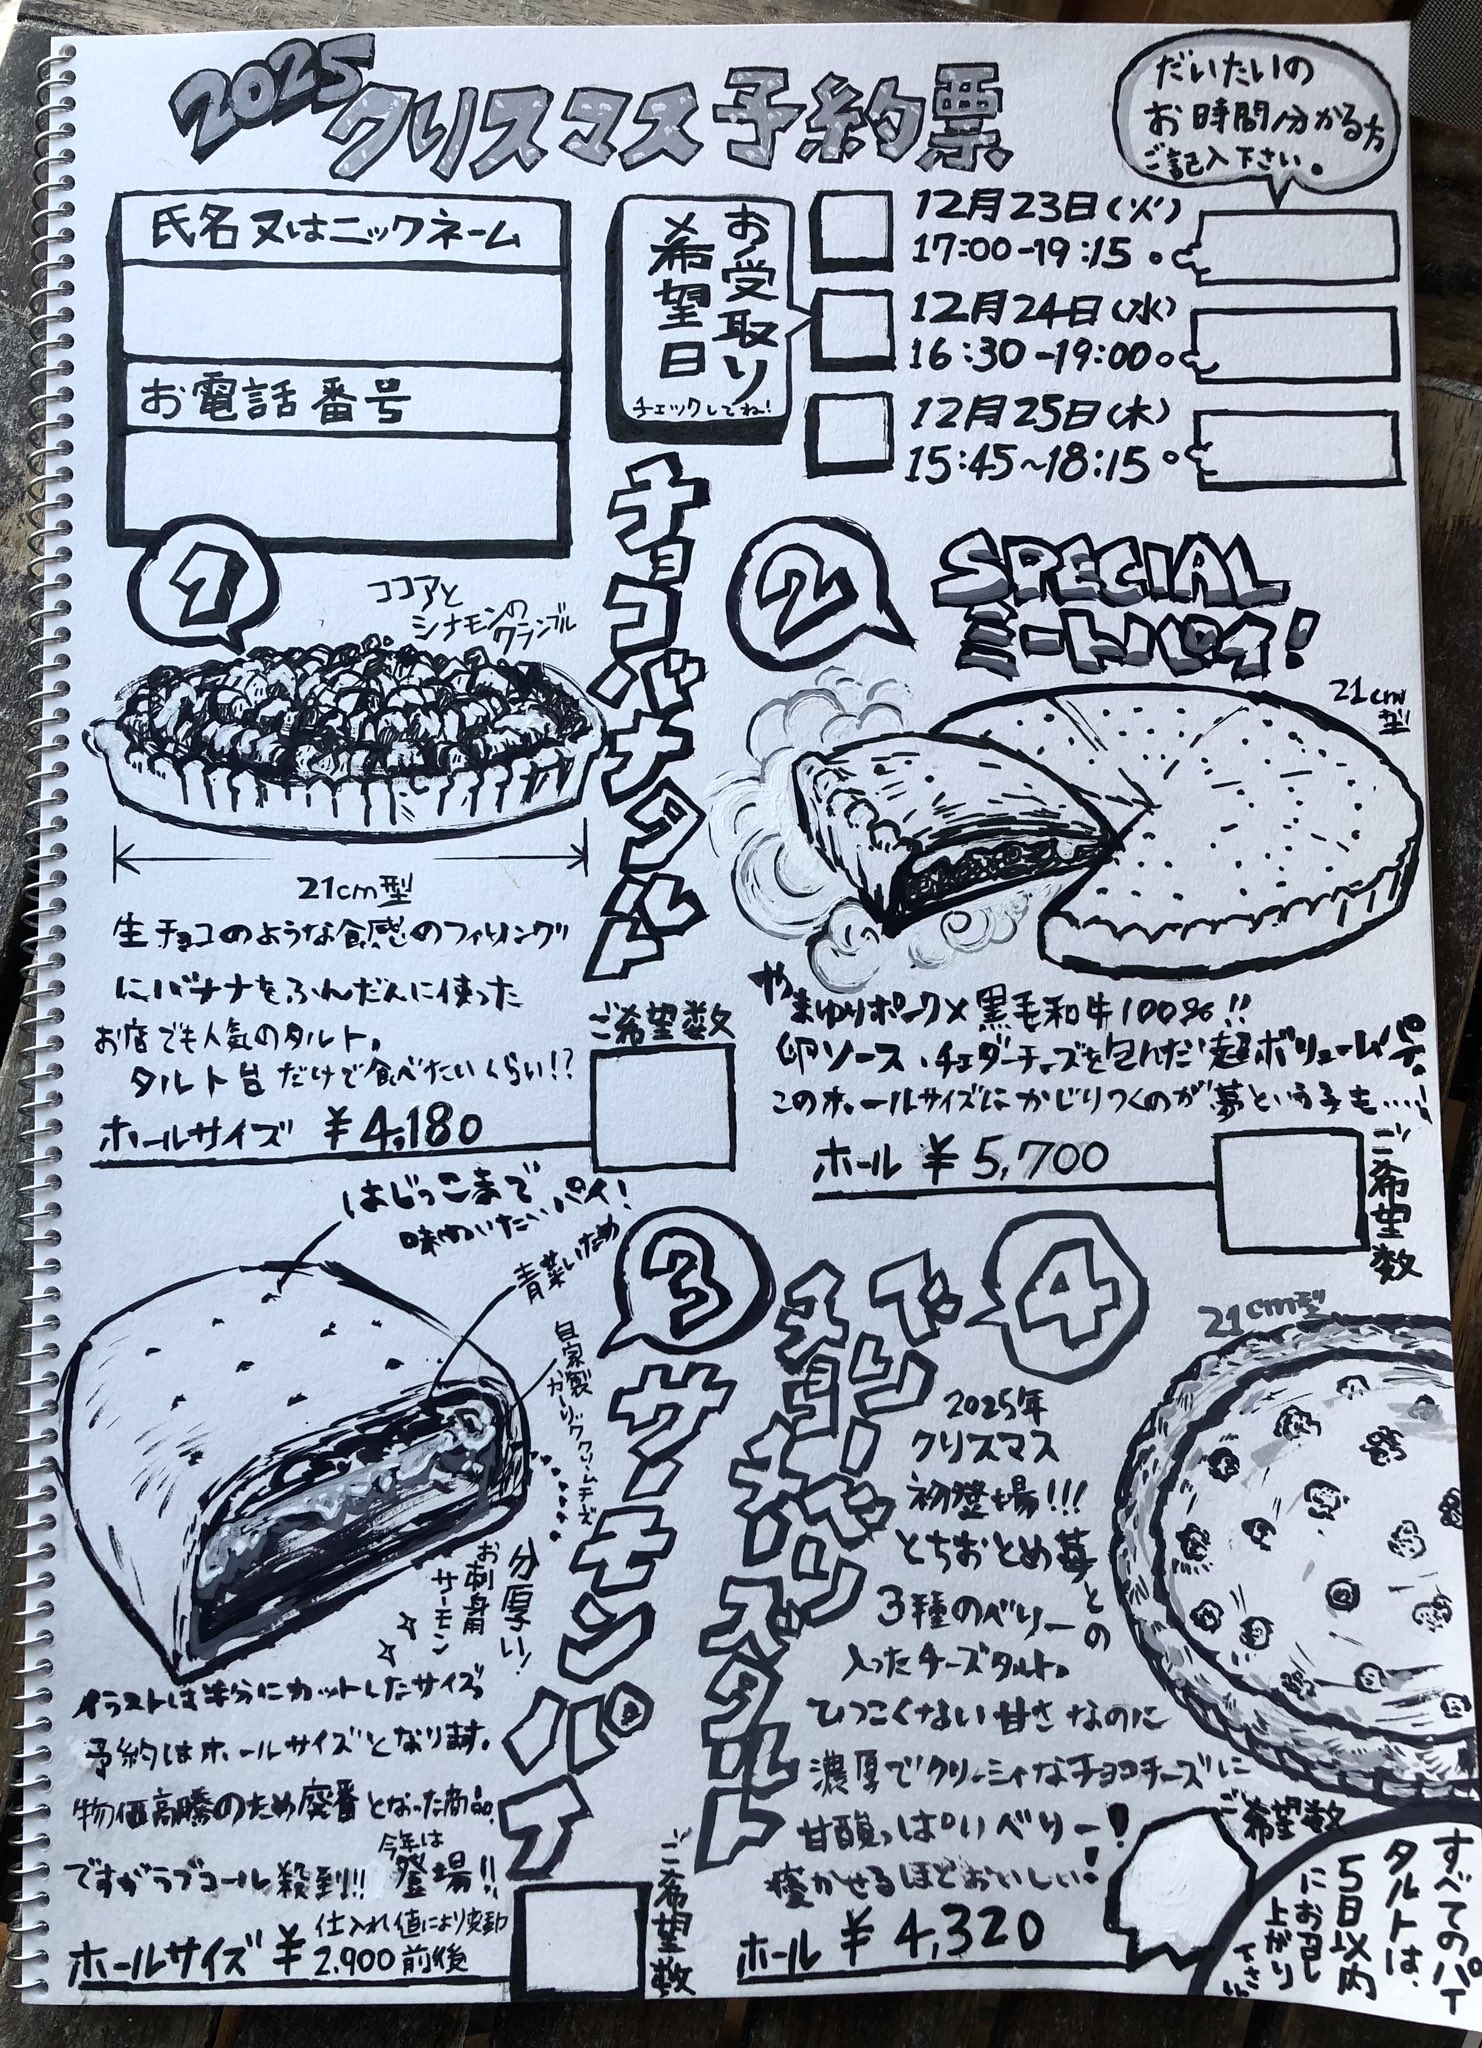 2025クリスマス予約票
だいたいの
お時間分かる方
ご記入下さい。
氏名又はニックネーム
お電話番号
お受取り
希望日
チェックしてね!
12月23日(火)
17:00-19:15
12月24日(水)
16:30-19:00
12月25日(木)
15:45~18:15
1
チョコバナナタルト
ココアと
シナモンの
クランブル
21cm型
生チョコのような食感のフィリング
にバナナをふんだんに使った
お店でも人気のタルト。
タルト台だけで食べたいくらい!?
ホールサイズ ¥4,180
ご希望数
2
SPECIAL
ミートパイ!
21cm型
やまゆりポーク×黒毛和牛100%!!
卵ソース、チェダーチーズを包んだ超ボリュームパイ。
このホールサイズにかじりつくのが夢という子も……!
ホール ¥5,700
ご希望数
3
サーモンパイ
はじっこまで
味わいたいパイ!
青菜いため
自家製
ガーリッククリームチーズ
分厚い!
お刺身用
サーモン
イラストは半分にカットしたサイズ。
予約はホールサイズとなります。
物価高騰のため廃番となった商品
ですがラブコール殺到!! 今年は登場!!
ホールサイズ ¥2,900前後
仕入れ値により変動
ご希望数
4
21cm型
2025年
クリスマス
初登場!!!
とちおとめ苺との
3種のベリー
入ったチーズタルト。
ひつこくない甘さなのに
濃厚でクリーミィなチョコチーズに
甘酸っぱいベリー!
ホール ¥4,320
ご希望数
すべてのパイ
タルトは、
5日以内
にお召し
上がり
下さい